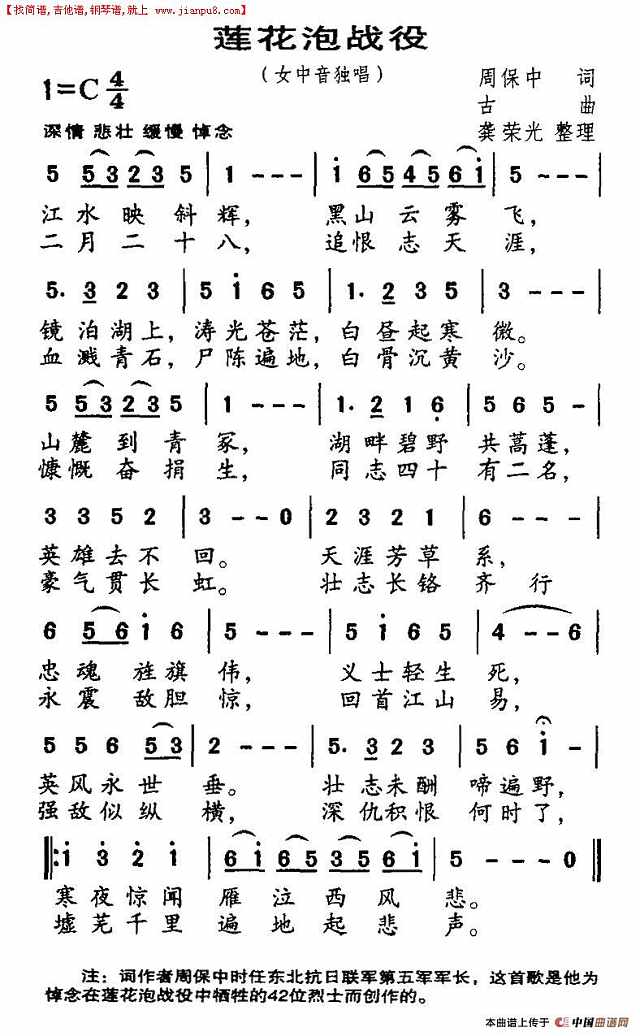 【找简谱,吉他谱,钢琴谱,就上 www.jianpu8.com】
莲花泡战役
（女中音独唱）
周保中 词
1=C 4/4
古 曲
深情 悲壮 缓慢 悼念
龚荣光 整理
5 5 3 2 3 5 | 1 - - - | 1 6 5 4 5 6 1 | 5 - - - |
江水映斜辉， 黑山云雾飞，
二月二十八， 追恨志天涯，
5. 3 2 3 | 5 1 6 5 | 1. 2 6 5 | 3 - - - |
镜泊湖上，涛光苍茫，白昼起寒微。
血溅青石，尸陈遍地，白骨沉黄沙。
5 5 3 2 3 5 | 1 - - - | 1. 2 1 6 | 5 6 5 - |
山麓到青冢， 湖畔碧野 共蒿蓬，
慷慨奋捐生， 同志四十 有二名，
3 3 5 2 | 3 - - 0 | 2 3 2 1 | 6 - - - |
英雄去不回。 天涯芳草系，
豪气贯长虹。 壮志长铬齐行
6 5 6 1 6 | 5 - - - | 5 1 6 5 | 4 - - 6 |
忠魂旌旗伟， 义士轻生死，
永震敌胆惊， 回首江山易，
5 5 6 5 3 | 2 - - - | 5. 3 2 3 | 5 6 1 - |
英风永世垂。 壮志未酬 啼遍野，
强敌似纵横， 深仇积恨 何时了，
‖: 1 3 2 1 | 6 1 6 5 3 5 6 1 | 5 - - 0 :‖
寒夜惊闻 雁泣西风悲。
墟芜千里 遍地起悲声。
注：词作者周保中时任东北抗日联军第五军军长，这首歌是他为
悼念在莲花泡战役中牺牲的42位烈士而创作的。
本曲谱上传于 中国曲谱网